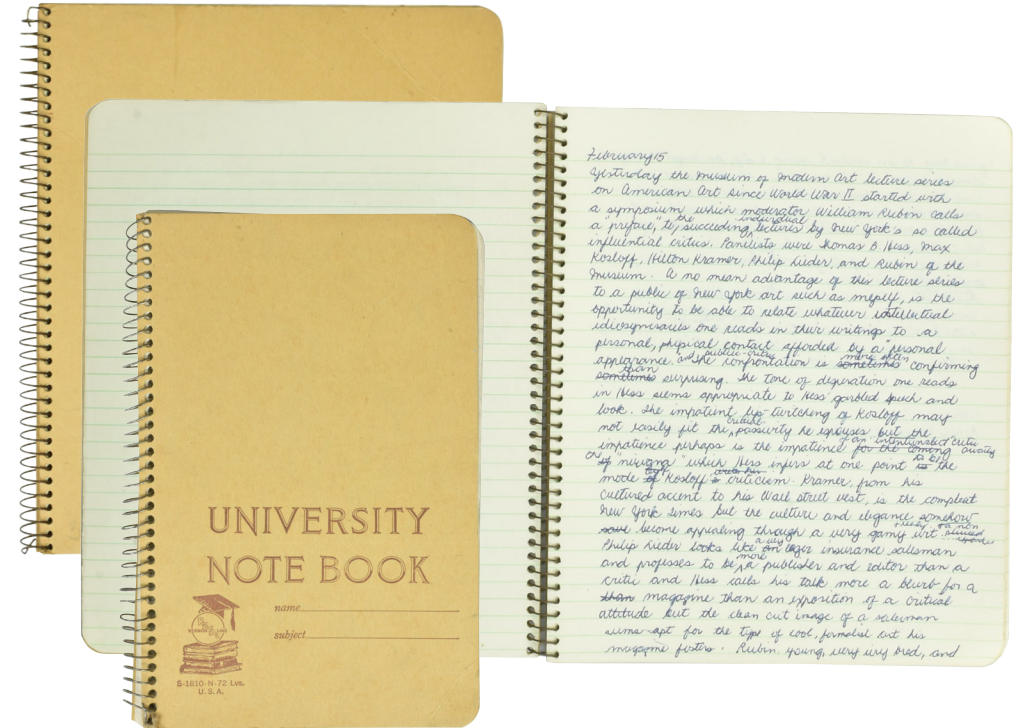 February 15
Yesterday the Museum of Modern Art lecture series
on American Art since World War II started with
a symposium which moderator William Rubin calls
a "preface," to the succeeding individual lectures by New York's so called
influential critics. Panelists were Thomas B. Hess, Max
Kosloff, Hilton Kramer, Philip Lieder, and Rubin of the
Museum. A no mean advantage of this lecture series
to a public of New York art such as myself, is the
opportunity to be able to relate whatever intellectual
idiosyncrasies one reads in their writings to a
personal, physical contact afforded by a "personal
appearance" and the public-critic confrontation is sometimes more often confirming
sometimes than surprising. The tone of desperation one reads
in Hess seems appropriate to Hess' garbled speech and
look. The impatient lip-twitching of Kosloff may
not easily fit the critical passivity he espouses but the
impatience perhaps is the impatience for the coming of an intentionalist critic
of "nirvana" which Hess infers at one point is to be the
mode of Kosloff's criticism. Kramer, from his
cultured accent to his Wall Street vest, is the compleat
New York Times but the culture and elegance somehow
become appealing through a very gamy wit.
Philip Lieder looks like an insurance salesman
and professes to be more a publisher and editor than a
critic and Hess calls his talk more a blurb for a
than magazine than an exposition of a critical
attitude but the clean cut image of a salesman
seems apt for the type of cool, formalist art his
magazine fosters. Rubin young, very very bred, and
UNIVERSITY
NOTE BOOK
name
subject
S-1810-N-72 Lvs.
U.S.A.